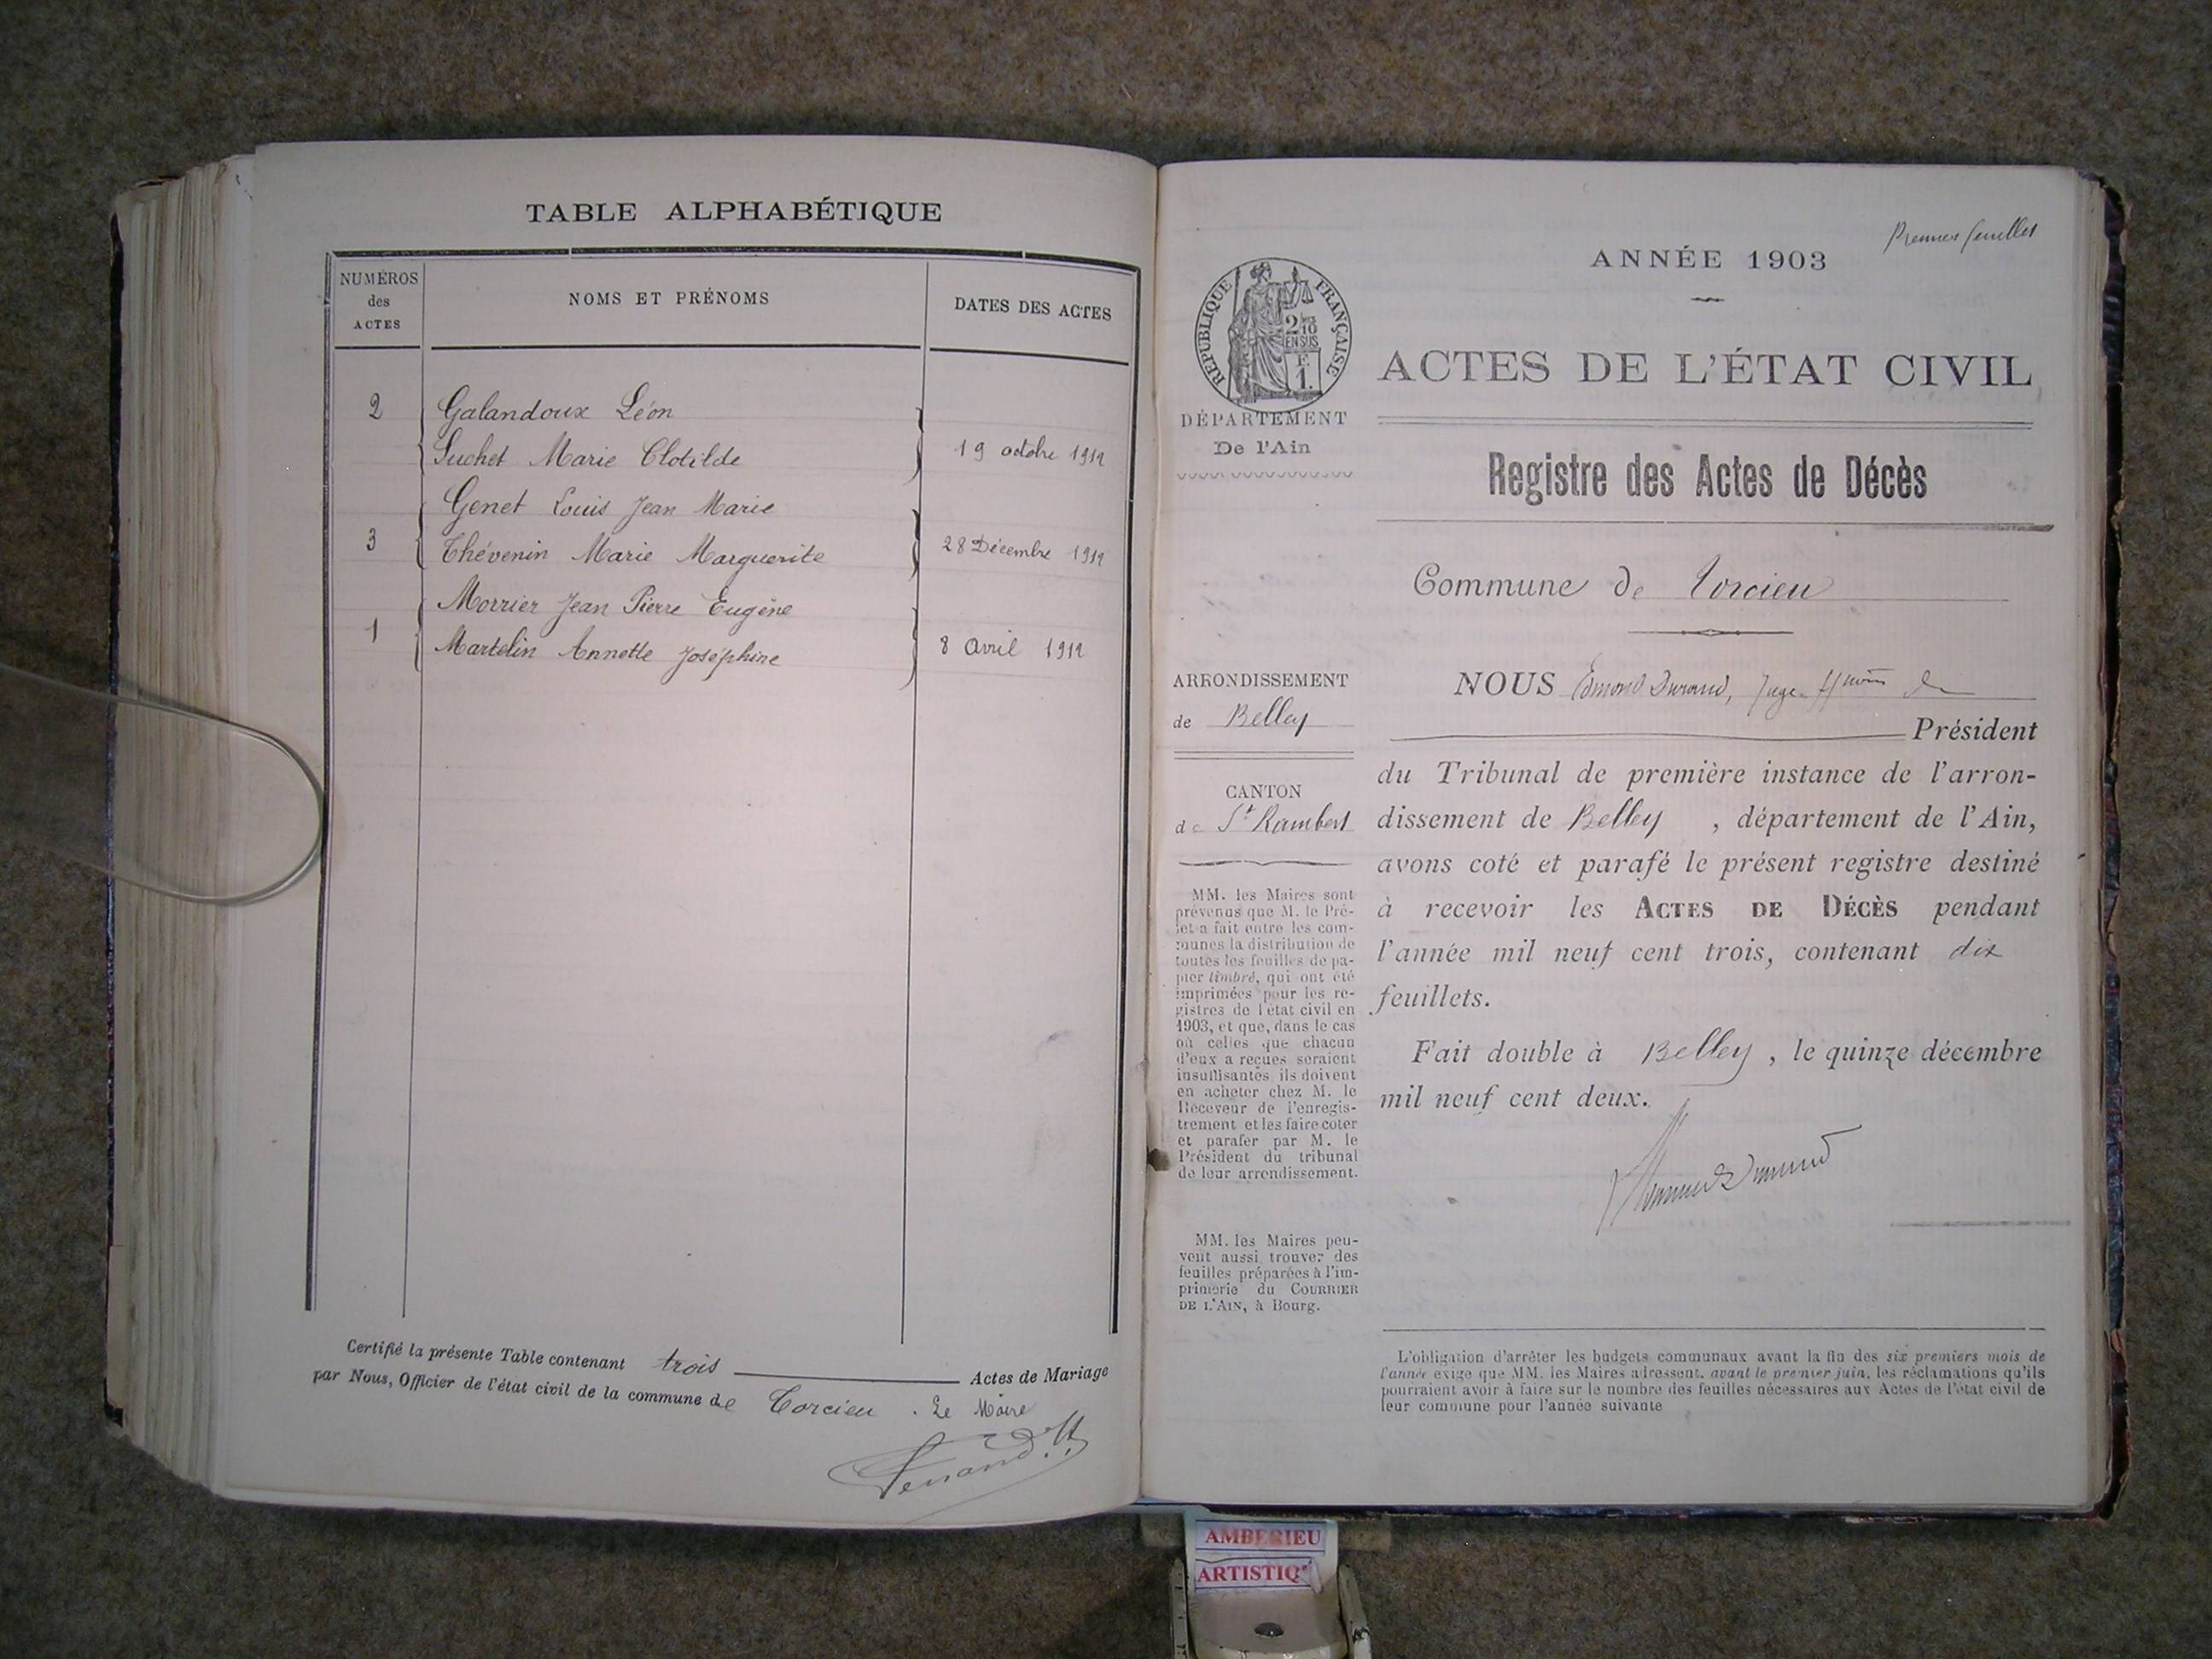 TABLE ALPHABÉTIQUE
NUMÉROS
des
ACTES
NOMS ET PRÉNOMS
DATES DES ACTES
2 Galandoux Léon
Suchet Marie Clotilde 19 octobre 1912
Genet Louis Jean Marie
3 Thévenin Marie Marguerite 28 Décembre 1912
Morrier Jean Pierre Eugène
1 Martelin Annette Joséphine 8 avril 1912
Certifié la présente Table contenant trois Actes de Mariage
par Nous, Officier de l'état civil de la commune de Torcieu. Le Maire
Premier feuillet
ANNÉE 1903
RÉPUBLIQUE FRANÇAISE
2/10
EN SUS
F.
1.
ACTES DE L'ÉTAT CIVIL
DÉPARTEMENT
De l'Ain
Registre des Actes de Décès
Commune de Torcieu
ARRONDISSEMENT
de Belley
CANTON
de St Rambert
MM. les Maires sont
prévenus que M. le Pré-
fet a fait entre les com-
munes la distribution de
toutes les feuilles de pa-
pier timbré, qui ont été
imprimées pour les re-
gistres de l'état civil en
1903, et que, dans le cas
où celles que chacun
d'eux a reçues seraient
insuffisantes, ils doivent
en acheter chez M. le
Receveur de l'enregis-
trement et les faire coter
et parafer par M. le
Président du tribunal
de leur arrondissement.
MM. les Maires peu-
vent aussi trouver des
feuilles préparées à l'im-
primerie du COURRIER
DE L'AIN, à Bourg.
NOUS Edmond Durand, Juge
Président
du Tribunal de première instance de l'arron-
dissement de Belley, département de l'Ain,
avons coté et parafé le présent registre destiné
à recevoir les ACTES DE DÉCÈS pendant
l'année mil neuf cent trois, contenant dix
feuillets.
Fait double à Belley, le quinze décembre
mil neuf cent deux.
L'obligation d'arrêter les budgets communaux avant la fin des six premiers mois de
l'année exige que MM. les Maires adressent, avant le premier juin, les réclamations qu'ils
pourraient avoir à faire sur le nombre des feuilles nécessaires aux Actes de l'état civil de
leur commune pour l'année suivante
AMBERIEU
ARTISTIQ